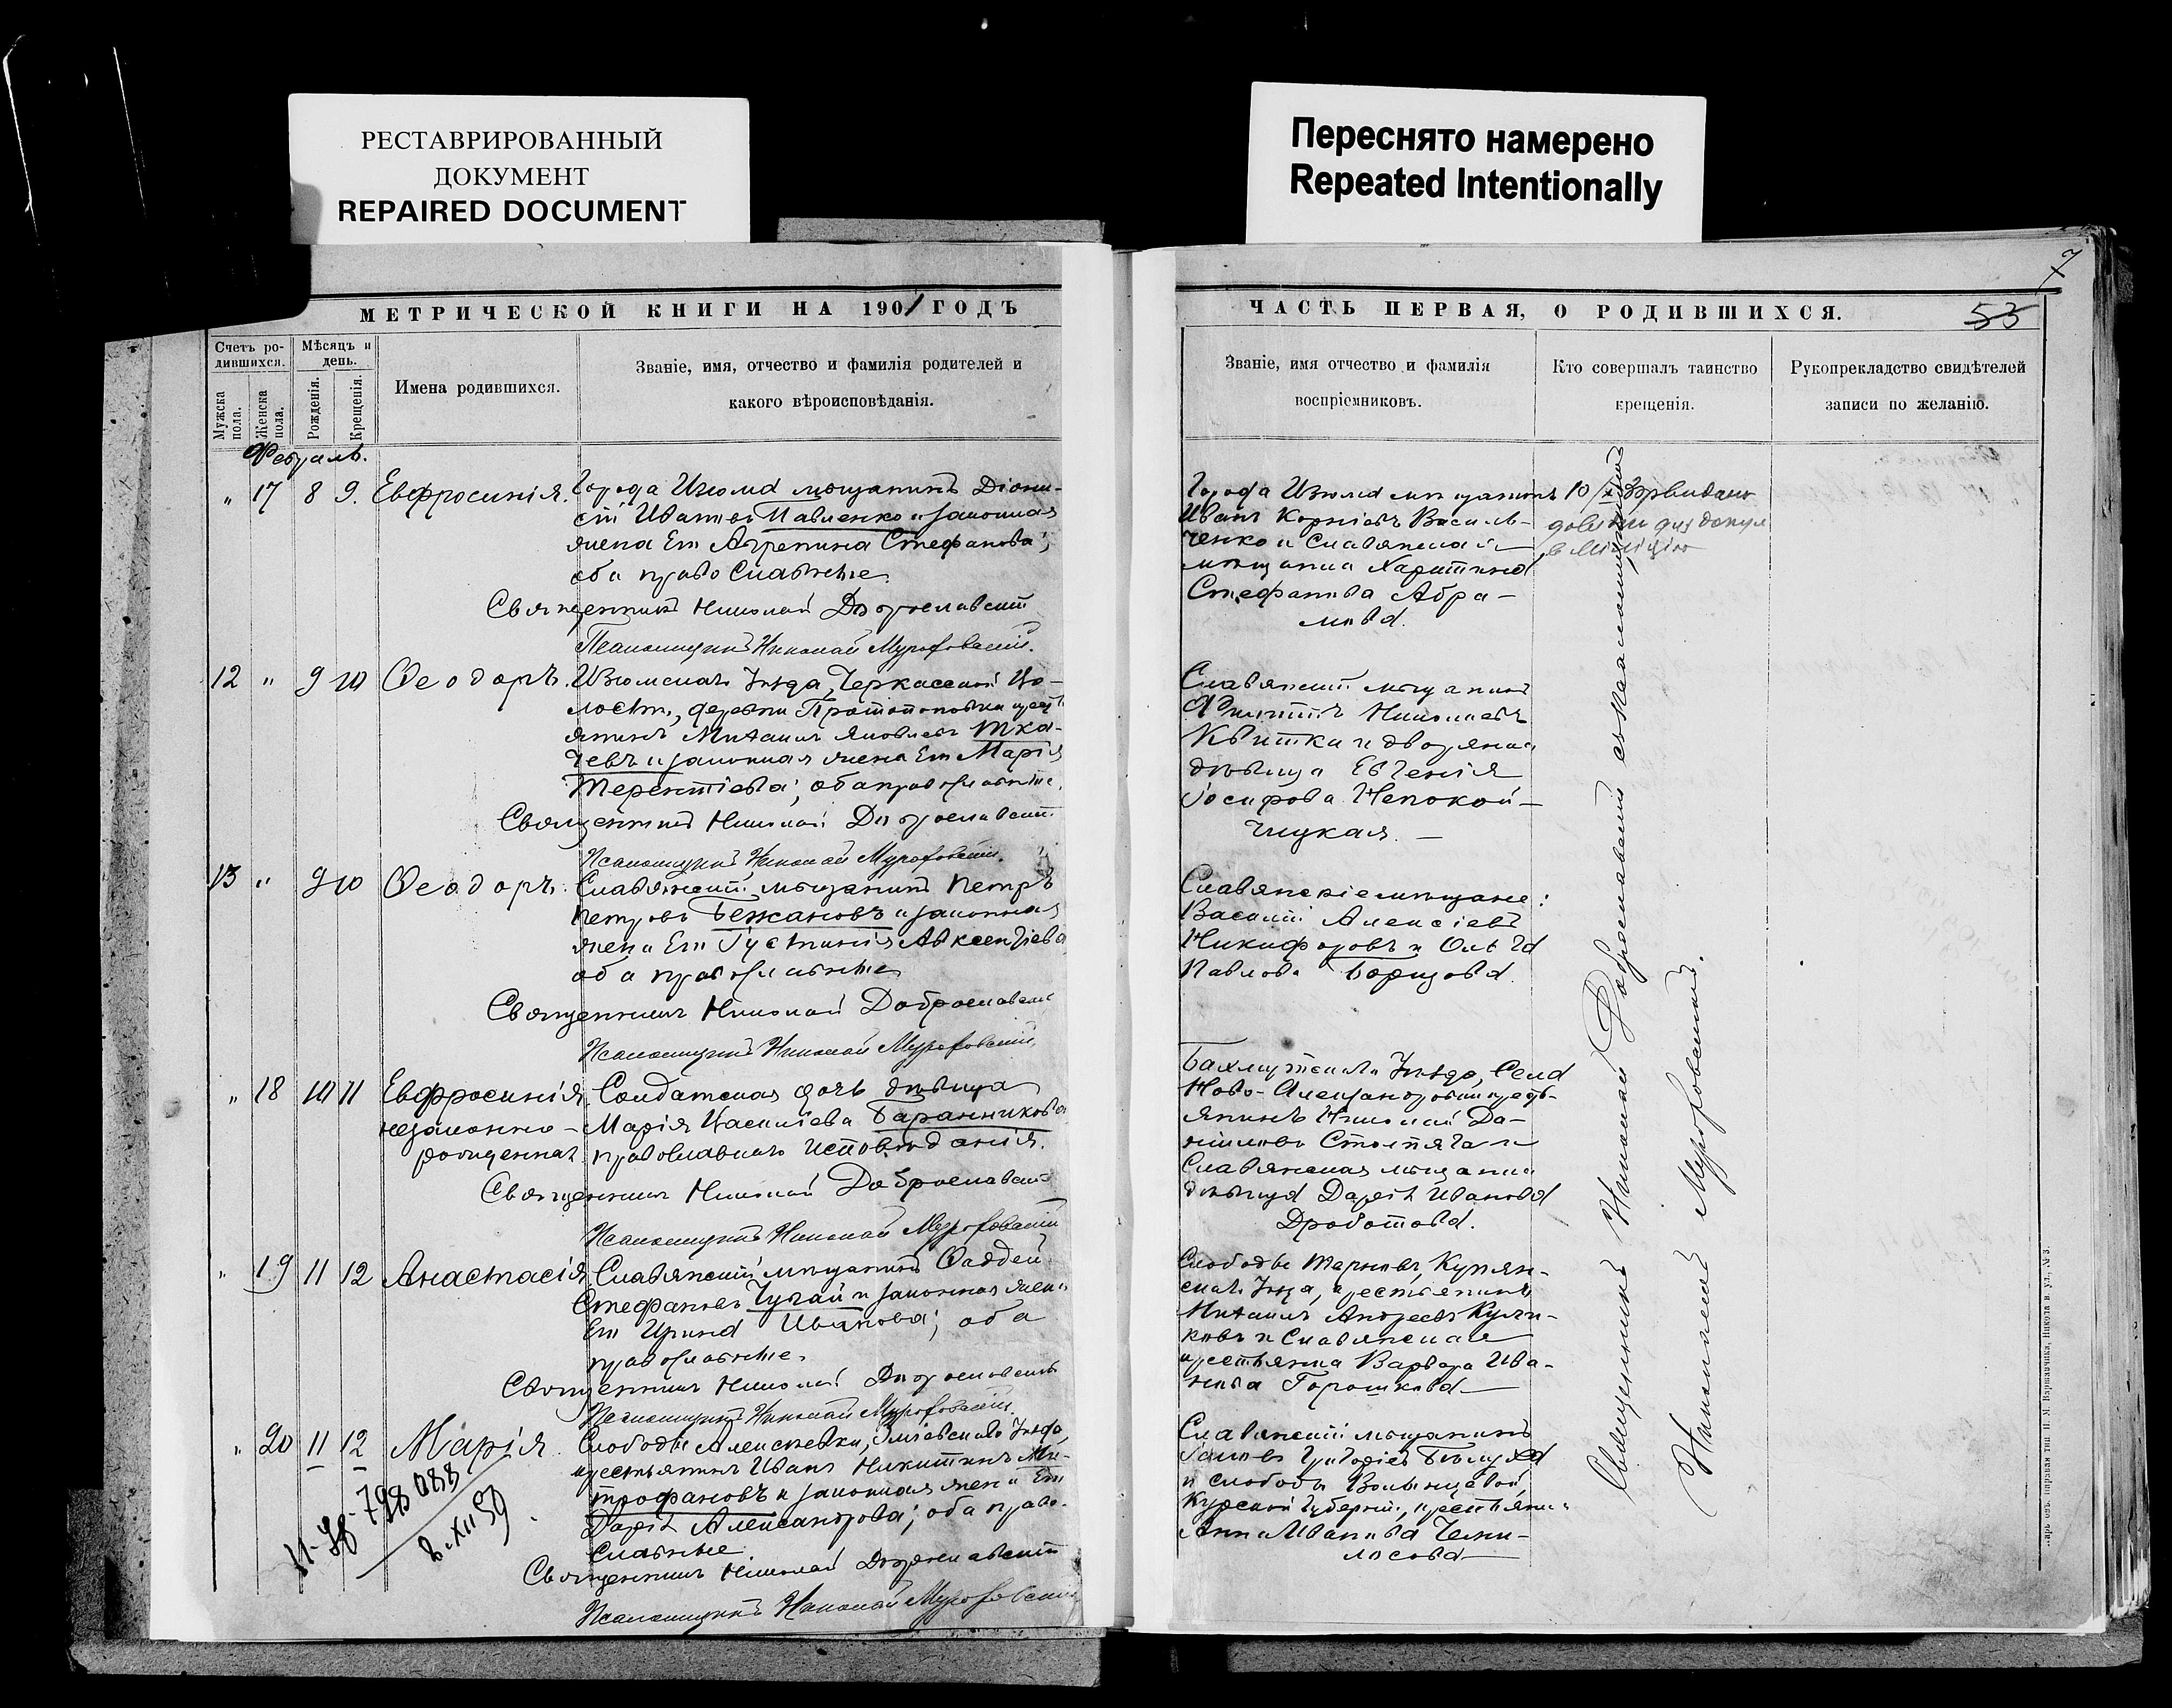 РЕСТАВРИРОВАННЫЙ
ДОКУМЕНТ
REPAIRED DOCUMENT
Переснято намерено
Repeated Intentionally
МЕТРИЧЕСКОЙ КНИГИ НА 1901 ГОДЪ
Счетъ ро-
дившихся.
Мѣсяцъ и
день.
Мужска
пола.
Женска
пола.
Рожденія.
Крещенія.
Имена родившихся.
Званіе, имя, отчество и фамилія родителей и
какого вѣроисповѣданія.
Февраль.
" 17 8 9. Евфросинія. Города Изюма мѣщанинъ Діони-
сій Ивановъ Павленко и законная
жена Его Агрепина Стефанова;
оба православные.
Священникъ Николай Доброславскій
Псаломщикъ Николай Мурофовскій.
12 " 9 10 Ѳеодоръ. Изюмскаго Уѣзда, Черкасской Во-
лости, деревни Протопоповки крест
янинъ Михаилъ Яковлевъ Тка-
чевъ и законная жена Его Марія
Терентіева; оба православные.
Священникъ Николай Доброславскій
Псаломщикъ Николай Мурофовскій.
13 " 9 10 Ѳеодоръ. Славянскій мѣщанинъ Петръ
Петровъ Бежановъ и законная
жена Его Іустинія Авксентіева
оба православные
Священникъ Николай Доброславскій
Псаломщикъ Николай Мурофовскій.
" 18 10 11 Евфросинія Солдатская дочь дѣвица
незаконно- Марія Васильева Баранникова
рожденная православнаго исповѣданія.
Священникъ Николай Доброславскій
Псаломщикъ Николай Мурофовскій
" 19 11 12 Анастасія Славянскій мѣщанинъ Фаддей
Стефановъ Чугай и законная жена
Его Ирина Иванова; оба
православные.
Священникъ Николай Доброславскій
Псаломщикъ Николай Мурофовскій.
" 20 11 12 Марія Слободы Алексѣевки, Зміевскаго Уѣзда,
крестьянинъ Иванъ Никитинъ Ми-
трофановъ и законная жена Его
Дарія Александрова; оба право-
славные
Священникъ Николай Доброславскій
Псаломщикъ Николай Мурофовскій
2.XII 59
ЧАСТЬ ПЕРВАЯ, О РОДИВШИХСЯ.
53
7
Званіе, имя отчество и фамилія
воспріемниковъ.
Кто совершалъ таинство
крещенія.
Рукоприкладство свидѣтелей
записи по желанію.
Города Изюма мѣщанинъ
Иванъ Корніевъ Василь-
ченко и Славянская
мѣщанка Харитина
Стефанова Абра-
мова.
Славянскій мѣщанинъ
Филиппъ Николаевъ
Квитка и дворянка
дѣвица Евгенія
Іосифова Непокой-
чицкая.
Славянскіе мѣщане:
Василій Алексіевъ
Никифоровъ и Ольга
Павлова Борцова.
Бахмутскаго Уѣзда, Села
Ново-Александровки кресть-
янинъ Николай Да-
ниловъ Столпяга и
Славянская мѣщанка
дѣвица Дарія Иванова
Дроботова.
крестьянинъ
Михаилъ Андреевъ Кули-
ковъ и Славянская
крестьянка Варвара Ива-
нова Горошкова
Славянскій мѣщанинъ
и слободы
Курской губерніи, крестьянка
Анна Иванова
Священникъ Николай Доброславскій съ псаломщикомъ
Николаемъ Мурофовскимъ.